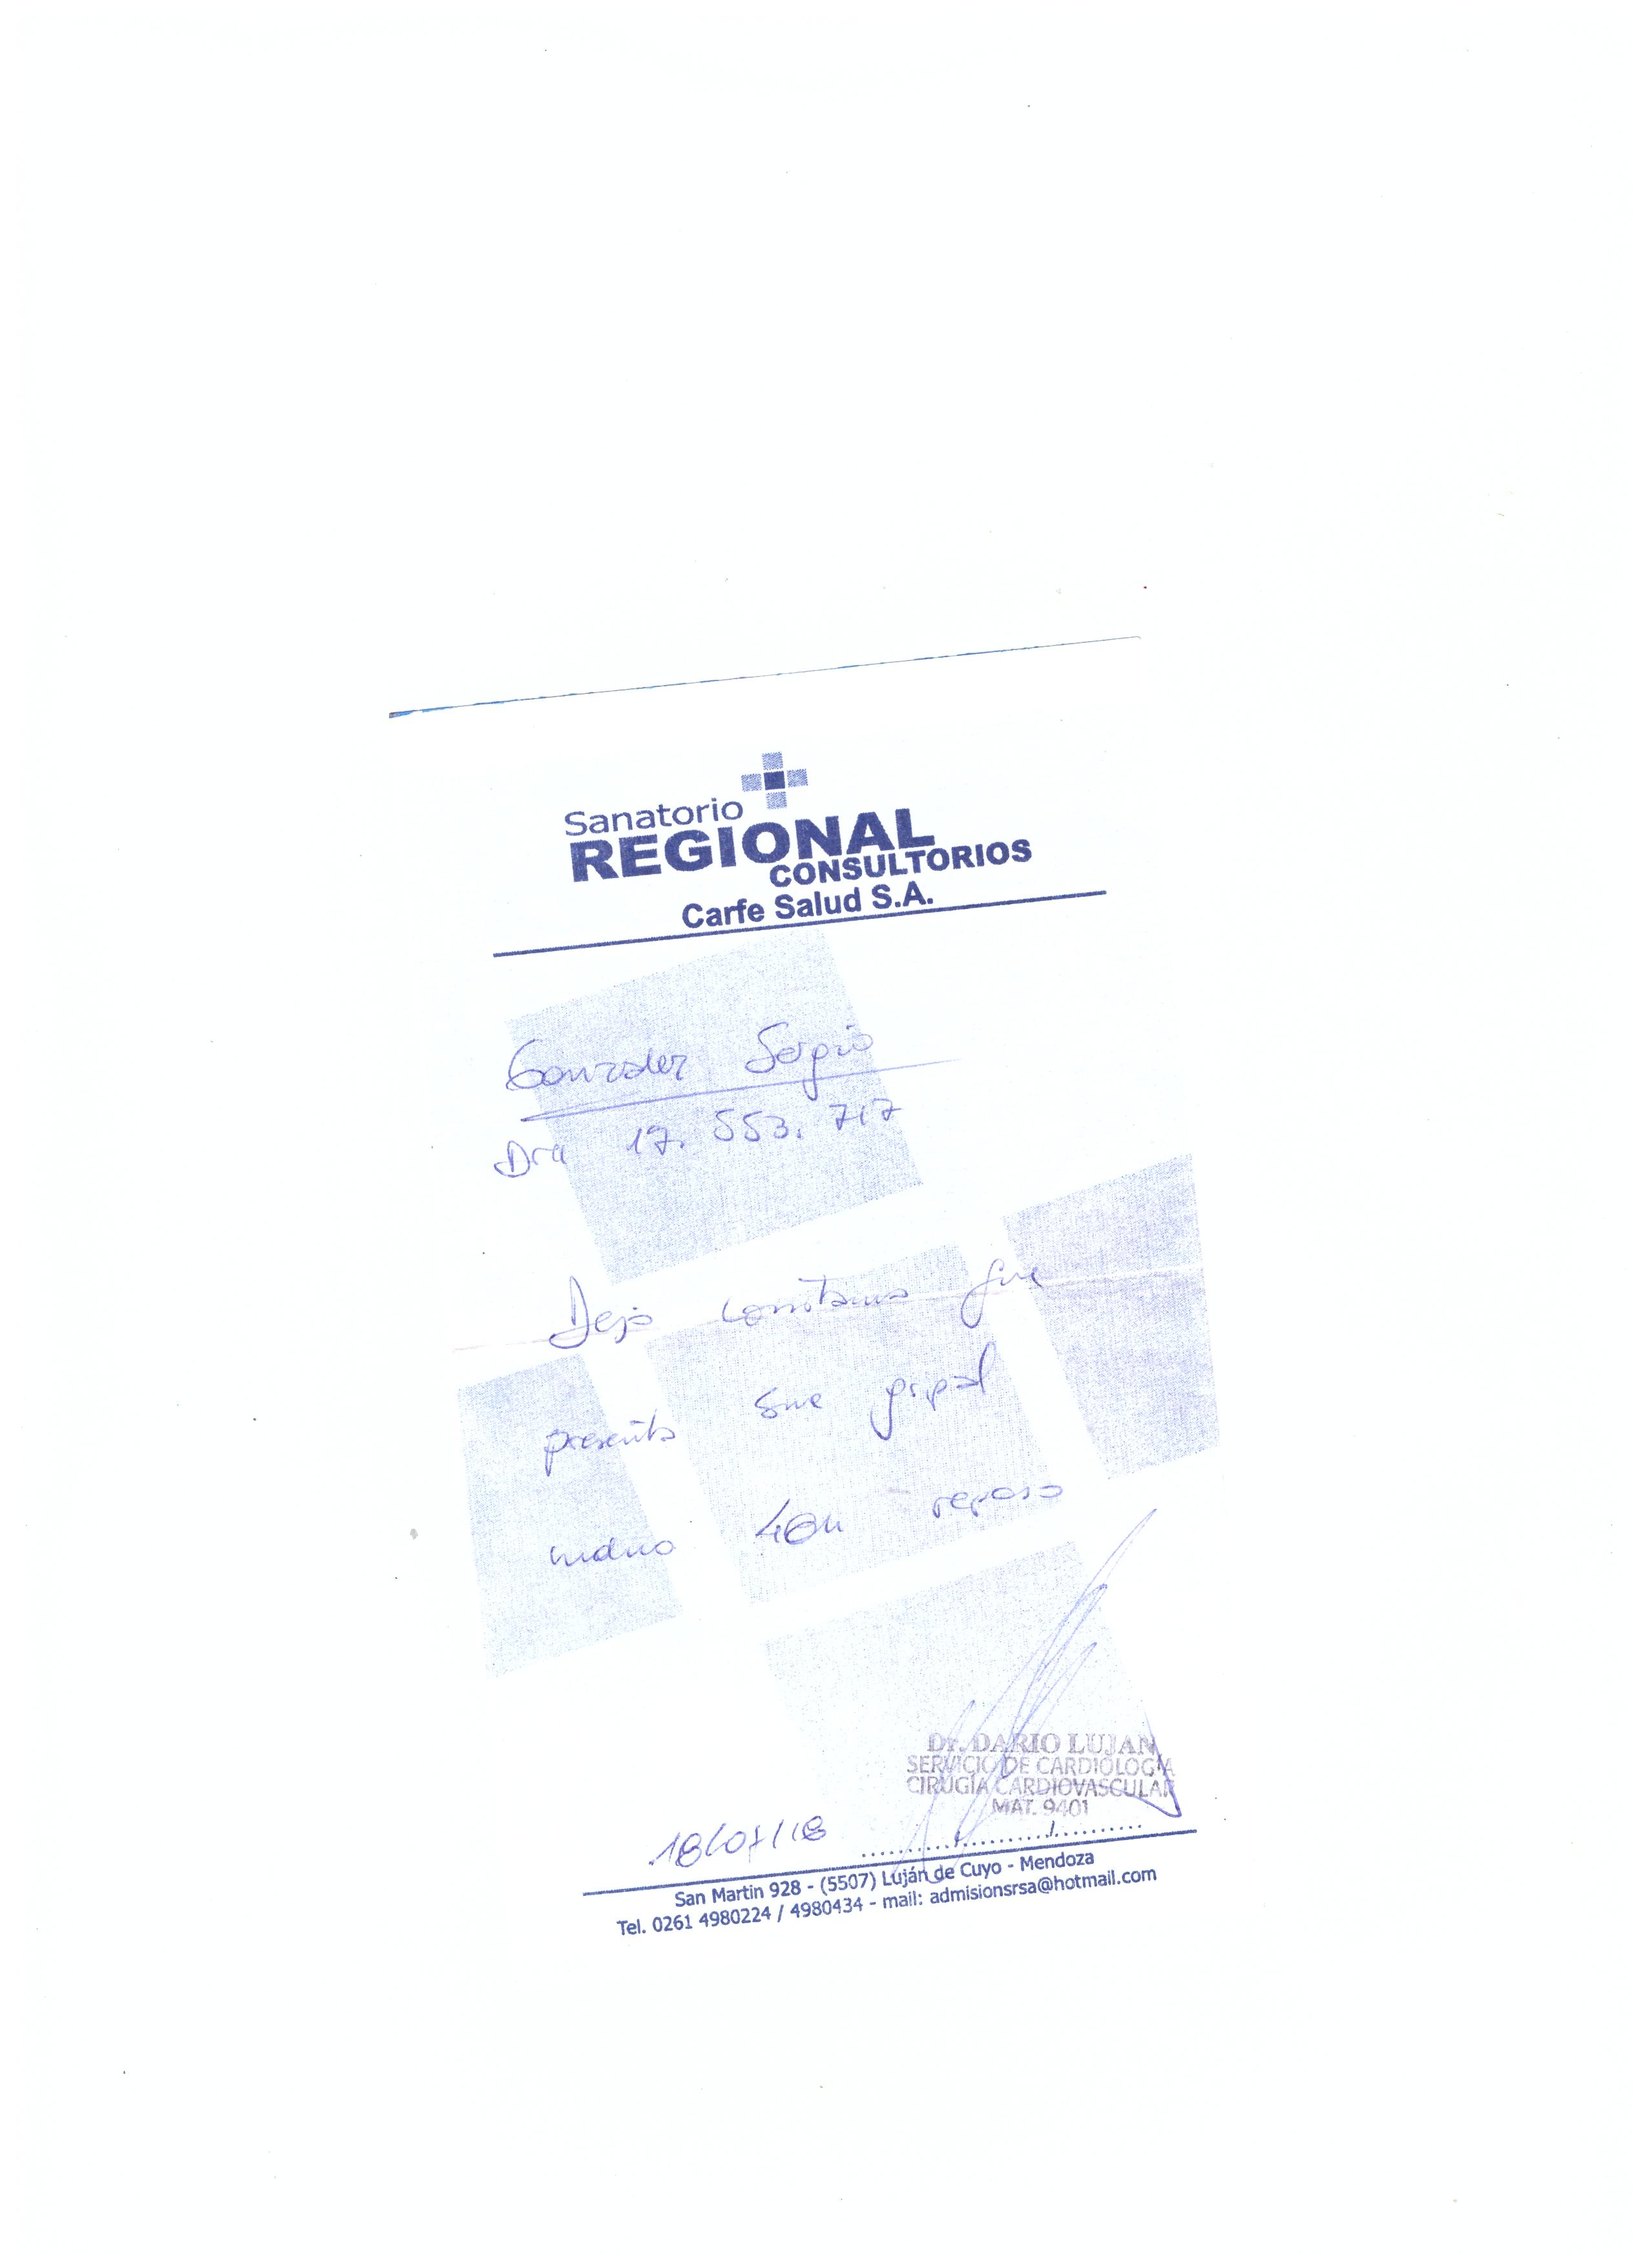 Sanatorio
REGIONAL
CONSULTORIOS
Carfe Salud S.A.
Gonzalez Sergio
DNI 17.553.717
Dejo constancia que
presenta sme gripal
indico 48h reposo
Dr. DARIO LUJAN
SERVICIO DE CARDIOLOGIA
CIRUGIA CARDIOVASCULAR
MAT. 9401
18/07/18
San Martin 928 - (5507) Luján de Cuyo - Mendoza
Tel. 0261 4980224 / 4980434 - mail: admisionsrsa@hotmail.com